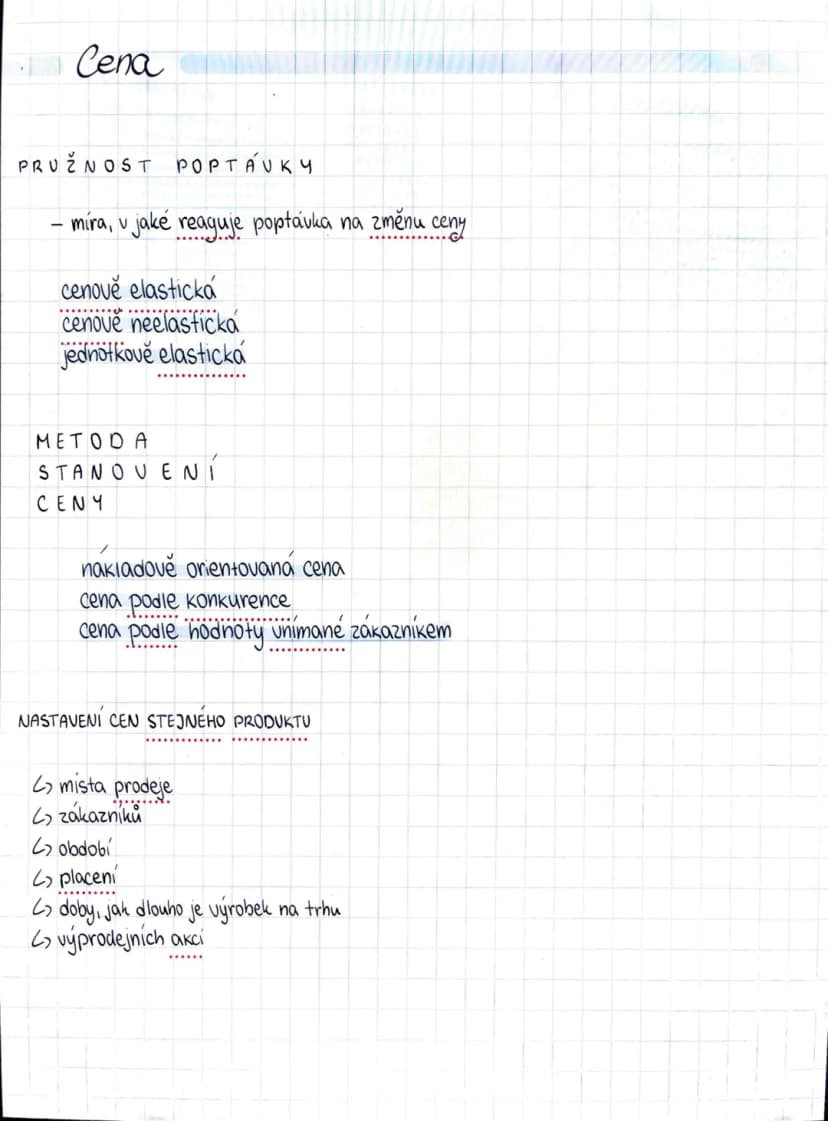 Cena
PRUŽNOST POPTÁVKY
– míra, v jaké reaguje poptávka na změnu ceny
cenově elastická
cenově neelastická
jednotkově elastická
METODA
STANOVENÍ
CENY
nákladově orientovaná cena
cena podle konkurence
cena podle hodnoty vnímané zákazníkem
NASTAVENÍ CEN STEJNÉHO PRODUKTU
↳ místa prodeje
↳ zákazníků
↳ období
↳ placení
↳ doby, jak dlouho je výrobek na trhu
↳ výprodejních akcí